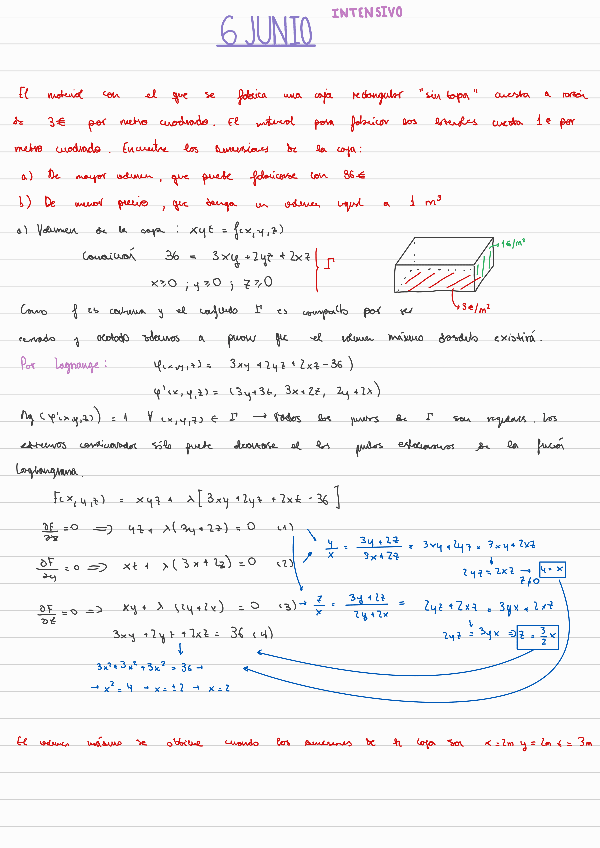 INTENSIVO
6 JUNIO
El material con el que se fabrica una caja rectangular "sin tapa" cuesta a razón
de 3€ por metro cuadrado. El material para fabricar los laterales cuesta 1€ por
metro cuadrado. Encuentre las dimensiones de la caja:
a) De mayor volumen, que puede fabricarse con 36€
b) De menor precio, que tenga un volumen igual a 1 m³
a) Volumen de la caja: xyz = f(x,y,z)
Condición 36 = 3xy + 2yz + 2xz
x≥0 ; y≥0 ; z≥0
Γ
1€/m²
3€/m²
Como f es continua y el conjunto Γ es compacto por ser
cerrado y acotado sabemos a priori que el volumen máximo
Por Lagrange: φ(x,y,z) = 3xy + 2yz + 2xz - 36)
φ'(x,y,z) = (3y+36, 3x+2z, 2y+2x)
Rg(φ'(x,y,z)) = 1 ∀ (x,y,z) ∈ Γ → todos los puntos de Γ son regulares. Los
extremos condicionados sólo puede alcanzarse el los puntos estacionarios de la función
Lagrangiana.
F(x,y,z) = xyz + λ[3xy + 2yz + 2xz - 36]
∂F/∂x = 0 => yz + λ(3y+2z) = 0 (1)
y/x = (3y+2z)/(3x+2z) = 3xy + 2yz = 3xy + 2xz
∂F/∂y = 0 => xz + λ(3x+2z) = 0 (2)
2yz = 2xz → z≠0 y = x
∂F/∂z = 0 => xy + λ(2y+2x) = 0 (3) → z/x = (3y+2z)/(2y+2x) = 2yz + 2zx = 3yx + 2xz
3xy + 2yz + 2xz = 36 (4)
2yz = 3yx => z = 3/2 x
3x² + 3x² + 3x² = 36 →
→ x² = 4 → x = ±2 → x = 2
El volumen máximo se obtiene cuando las dimensiones de la caja son x=2m y=2m z=3m